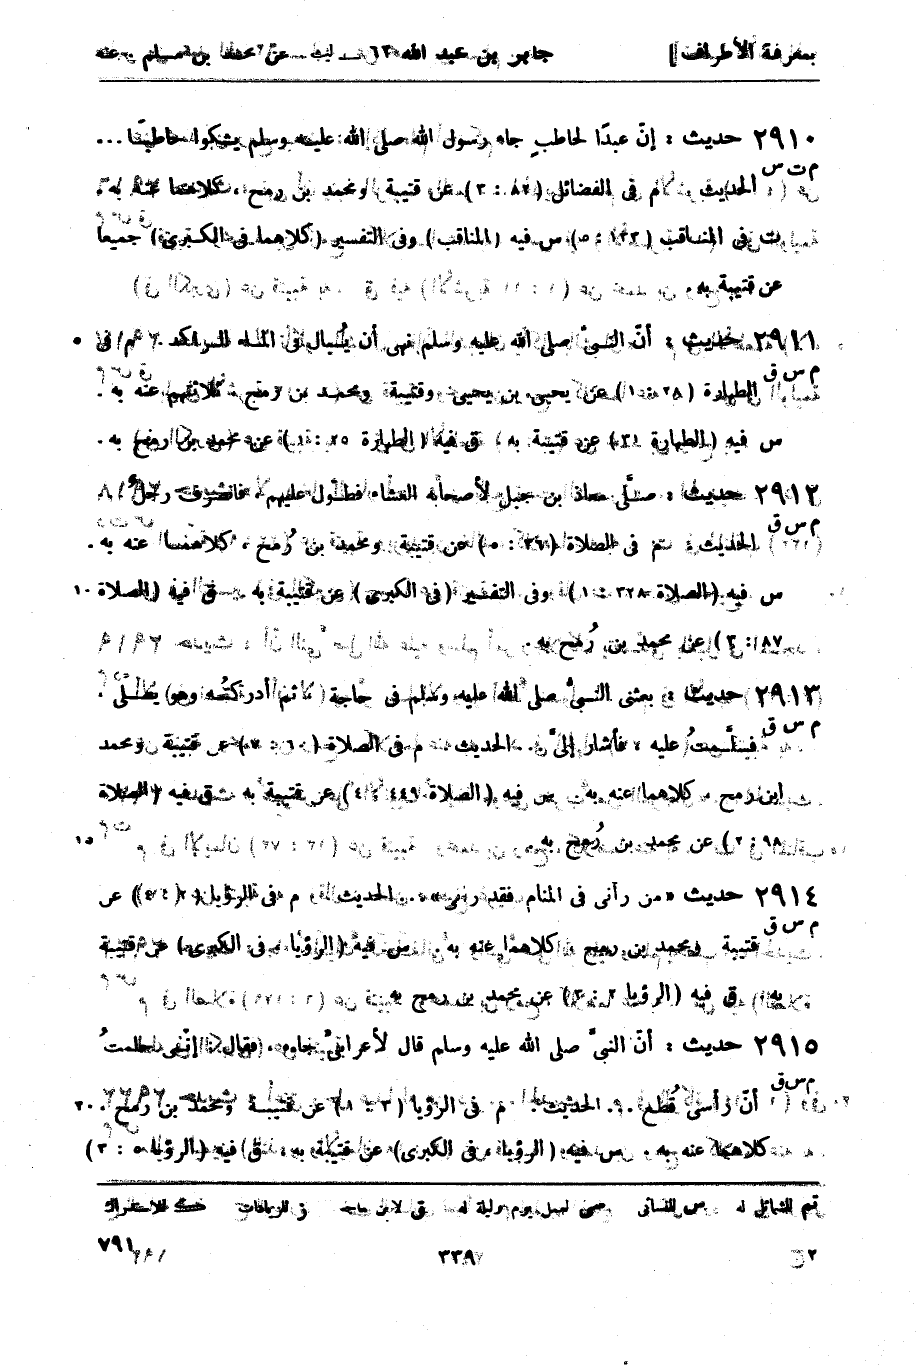 بمعرفة الأطراف] جابر بن عبد الله ٦٣ — ليث — عن محمد بن مسلم — عنه
٢٩١٠ حديث : إنّ عبدًا لحاطبٍ جاء رسول الله صلى الله عليه وسلم يشكوا حاطبًا ...
م ت س
الحديث م فى الفضائل (٨٧ : ٢) عن قتيبة ومحمد بن رمح، كلاهما عنه به.
ت فى المناقب ( : ٥) س فيه (المناقب) وفى التفسير (كلاهما فى الكبرى) جميعا
عن قتيبة به.
٢٩١١ حديث : أنّ النبىّ صلى الله عليه وسلم نهى أن يُبال فى الماء الراكد. م فى ٥
م س ق
الطهارة (٢٨ : ١) عن يحيى بن يحيى وقتيبة ومحمد بن رمح، ثلاثتهم عنه به.
س فيه (الطهارة ٣١) عن قتيبة به، ق فيه (الطهارة ٢٥ : ١) عن محمد بن رمح به.
٢٩١٢ حديث : صلَّى معاذ بن جبل لأصحابه العشاء فطوّل عليهم، فانصرف رجلٌ
م س ق
الحديث. م فى الصلاة (٣٦ : ٥) عن قتيبة ومحمد بن رُمح، كلاهما عنه به.
س فيه (الصلاة ٣٢٨ : ١) وفى التفسير (فى الكبرى) عن قتيبة به. ق فيه (الصلاة ١٠
١٨٧ : ٣) عن محمد بن رُمح به.
٢٩١٣ حديث : بعثنى النبىّ صلى الله عليه وسلم فى حاجة ثم أدركتُه وهو يصلّى.
م س ق
فسلَّمتُ عليه، فأشار إلىّ. الحديث م فى الصلاة ( : ٧) عن قتيبة ومحمد
ابن رمح، كلاهما عنه به. س فيه (الصلاة ٤٤٩ : ) عن قتيبة به. ق فيه (الصلاة
٩٨ : ٢) عن محمد بن رُمح به. ١٥
٢٩١٤ حديث «من رآنى فى المنام فقد رآنى» . الحديث م فى الرؤيا (٢ : ) عن
م س ق
قتيبة ومحمد بن رمح كلاهما عنه به. س فيه (الرؤيا، فى الكبرى) عن قتيبة
به. ق فيه (الرؤيا ٢ : ) عن محمد بن رمح به
٢٩١٥ حديث : أنّ النبىّ صلى الله عليه وسلم قال لأعرابىّ جاءه. فقال : إنّى حلمتُ
م س ق
أنّ رأسى قُطع ... الحديث. م فى الرؤيا (٣ : ) عن قتيبة ومحمد بن رمح. ٢٠
كلاهما عنه به. س فيه (الرؤيا، فى الكبرى) عن قتيبة به، ق فيه (الرؤيا ٥ : ٣)
تم للشمائل له س للنسائى سى لعمل يوم وليلة له ق لابن ماجه ز للزيادات ك للاستدراك
٢ ٣٣٩ ٧٩١